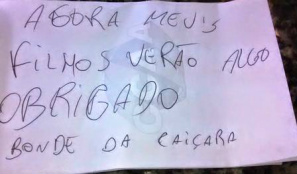 AGORA MEU's
FILHOS VERÃO ALGO
OBRIGADO
BONDE DA CAIÇARA